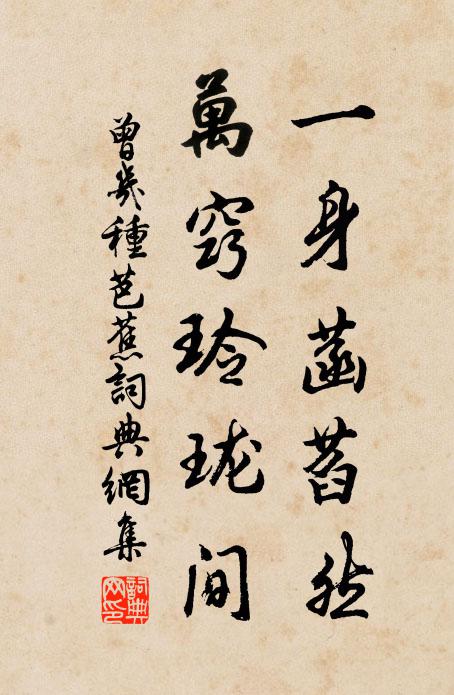 一身菡萏然
萬窍玲珑间
曾幾種芭蕉詞典網集
詞典網印